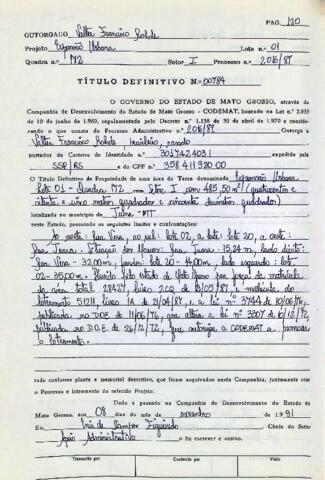 PAG. 120
OUTORGADO Valter Francisco Rohde
Projeto Expansão Urbana Lote n.o 01
Quadra n.o M2 Setor I Processo n.o 2016/87
TÍTULO DEFINITIVO N.o 00784
O GOVERNO DO ESTADO DE MATO GROSSO, através da
Companhia de Desenvolvimento do Estado de Mato Grosso - CODEMAT, baseado na Lei n.o 2.933
de 10 de junho de 1.969, regulamentada pelo Decreto n.o 1.138 de 30 de abril de 1.970 e consideran-
do o que consta do Processo Administrativo n.o 2016/87 Outorga a
Valter Francisco Rohde, brasileiro,
portador da Carteira de Identidade n.o 3017424031 expedida pela
SSP/RS e do CPF n.o 358411920 00
o Título Definitivo de Propriedade de uma área de Terra denominada Expansão Urbana
Lote 01 - Quadra M2 Setor I com 485,50 m² (quatrocentos e
oitenta e cinco metros quadrados e cinquenta decímetros quadrados)
localizada no município de Juína - MT
neste Estado, possuindo os seguintes limites e confrontações:
Ao norte: Rua Viena, ao sul: lote 02, a lote: 20, a oeste:
15,24 m, lado direito:
Rua Viena - 32,00m, fundos: lote 20 - 14,00m, lado esquerdo: lote
02 - 35,00m - pelo Estado de Mato Grosso por força da matrícula
da área total 28427, livro 2CQ 87, matrícula do
loteamento 51211, livro 1A de 21/04/87, a lei nº 3744 de 10/06/76,
publicada no DOE de 11/06/76, que altera a lei nº 3307 de 10/12/72,
publicada no D.O.E. de 26/12/72, que autoriza a CODEMAT a promover
o loteamento.
tudo conforme planta e memorial descritivo, que ficam arquivados nesta Companhia, juntamente com
o Processo e loteamento do referido Projeto.
Dado e passado na Companhia de Desenvolvimento do Estado de
Mato Grosso, aos 08 dias do mês de novembro de 1991
Eu Inês de Campos Figueiredo Chefe do Setor
Apoio Administrativo o fiz escrever e assino.
Transcrito por Conferido por Visto